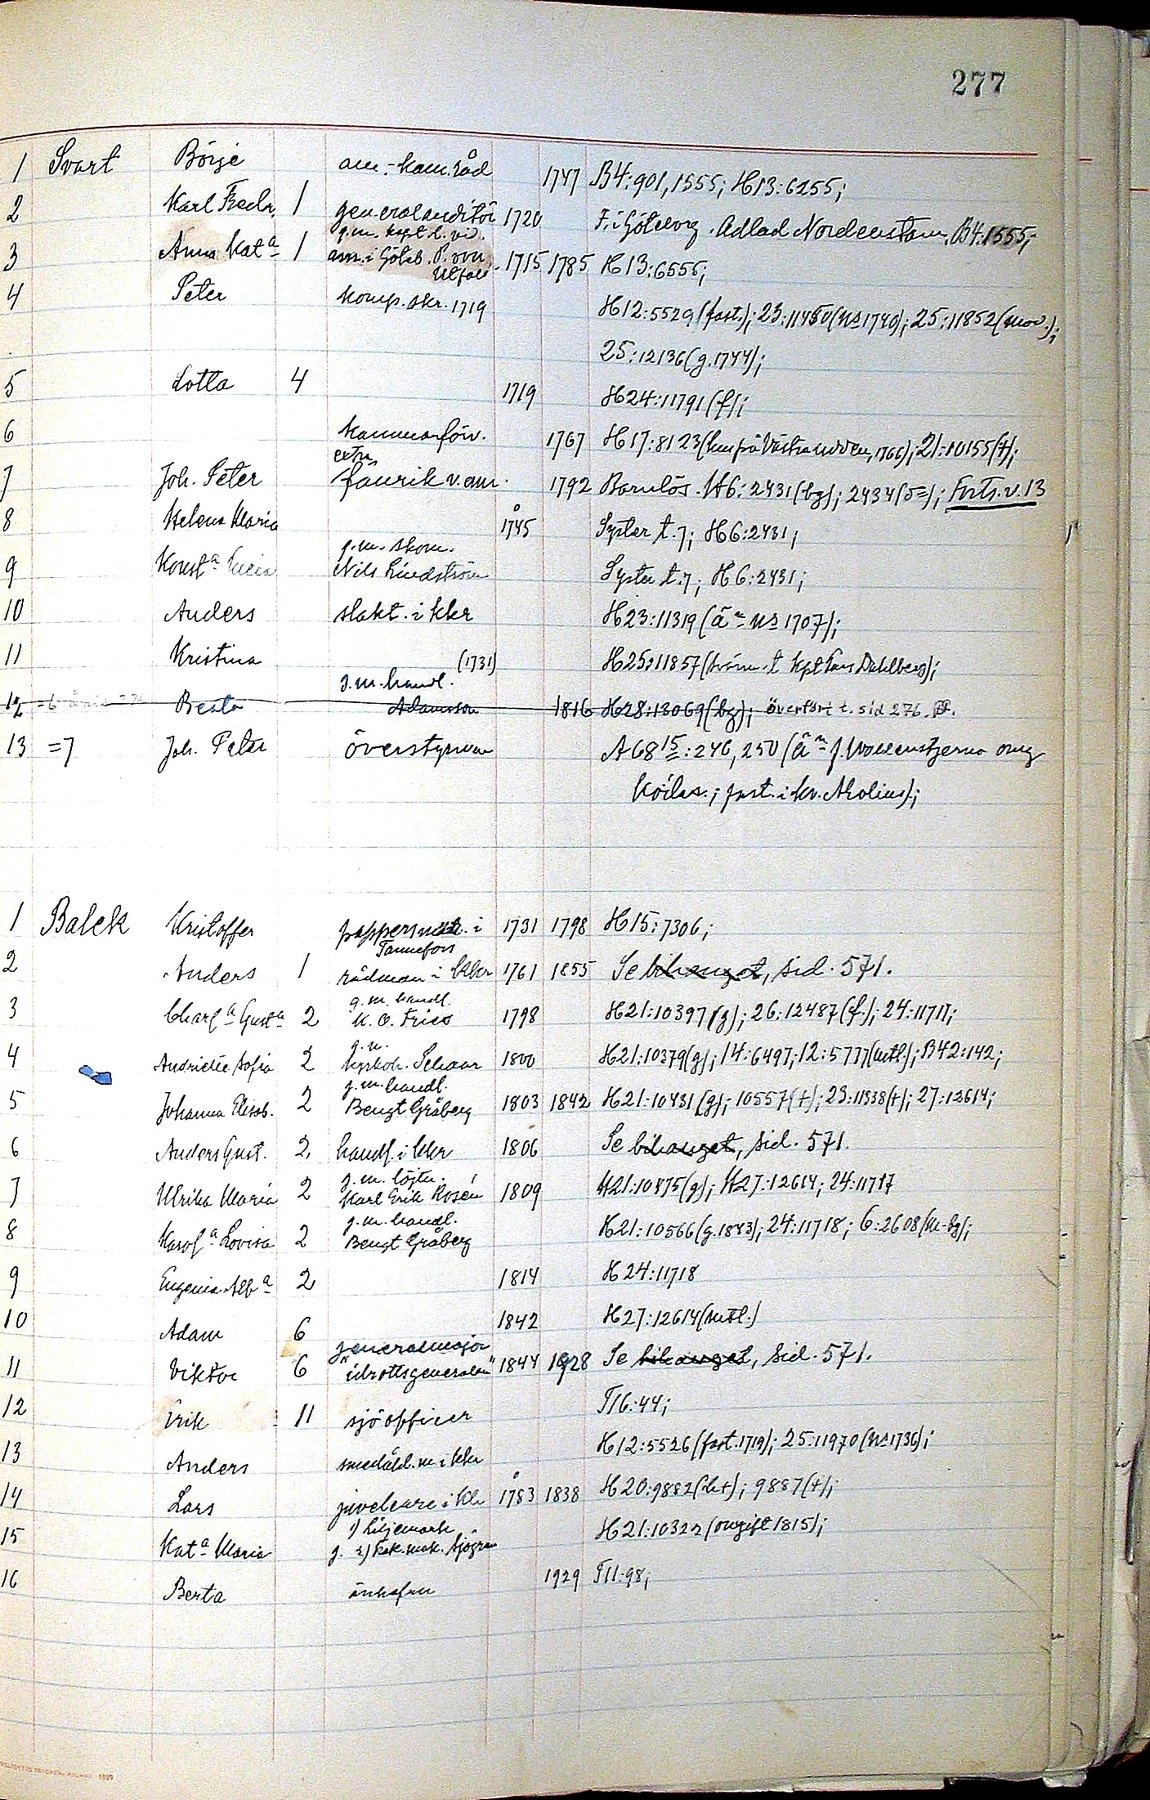 277
1 Svart Börje am:-kam.råd 1747 B4:901, 1555; H13:6255;
2 Karl Fredr. 1 generalauditör 1720 F. i Göteborg. Adlad Nordenstam, B4:1555;
3 Anna Kata 1 g.m. kapt. v. vid. am. i Göteb. P. von Utfall 1715 1785 H13:6555;
4 Peter komp.skr. 1719 H12:5529 (fast.); 23:11450 (ns 1740); 25:11852 (mov.);
25:12136 (g. 1744);
5 Lotta 4 1719 H24:11791 (f);
6 kammarförv. 1767 H17:8123 1766); 21:10155 (+);
7 Joh. Peter extra fänrik v. am. 1792 Barnlös. H6:2431 (bg); 2434 (5=); Forts. v. 13
8 Helena Maria 1745 Syster t. 7; H6:2431;
9 Konsta g.m. skom. Nils Lindström Syster t. 7; H6:2431;
10 Anders slakt. i kkr H23:11319 (äm ns 1707);
11 Kristina (1731) H25:11857 kpt Lars Dahlberg);
12 =6 Beata g.m. handl. Adamsson 1816 H28:13069 (bg); överfört t. sid 276.
13 =7 Joh. Peter överstyrman A6815:246, 250 (äm f. omg
fast. i kv.
1 Balck Kristoffer pappersmäst. i Tannefors 1731 1798 H15:7306;
2 Anders 1 rådman i kkr 1761 1855 Se bihanget, sid. 571.
3 Charla Gusta 2 g.m. handl. K. O. Fries 1798 H21:10397 (g); 26:12487 (f.); 24:11717;
4 Andriette Sofia 2 g.m. Schaar 1800 H21:10379 (g); 14:6497; 12:5737 (mtl.); B42:142;
5 Johanna Elisab. 2 g.m. handl. Bengt Gråberg 1803 1842 H21:10431 (g); 10557 (+); 23:11338 (+); 27:12614;
6 Anders Gust. 2 handl. i kkr 1806 Se bihanget, sid. 571.
7 Ulrika Maria 2 g.m. löjtn. Karl Erik Rosén 1809 H21:10475 (g); H27:12614; 24:11717
8 Karola Lovisa 2 g.m. handl. Bengt Gråberg H21:10566 (g. 1843); 24:11718; 6:2608 (m-bg);
9 Eugenia Alba 2 1814 H24:11718
10 Adam 6 1842 H27:12614 (mtl.)
11 Viktor 6 generalmajor "idrottsgeneralen" 1844 1928 Se bihanget, sid. 571.
12 Erik 11 sjöofficer T16:44;
13 Anders smedåld.m. i kkr H12:5526 (fast. 1719); 25:11970 (ns 1736);
14 Lars juvelerare i kkr 1783 1838 H20:9882 ; 9887 (+);
15 Kata Maria g. 1) Liljemark 2) Sjögren H21:10322 (omgift 1815);
16 Berta änkefru 1929 T11:98;